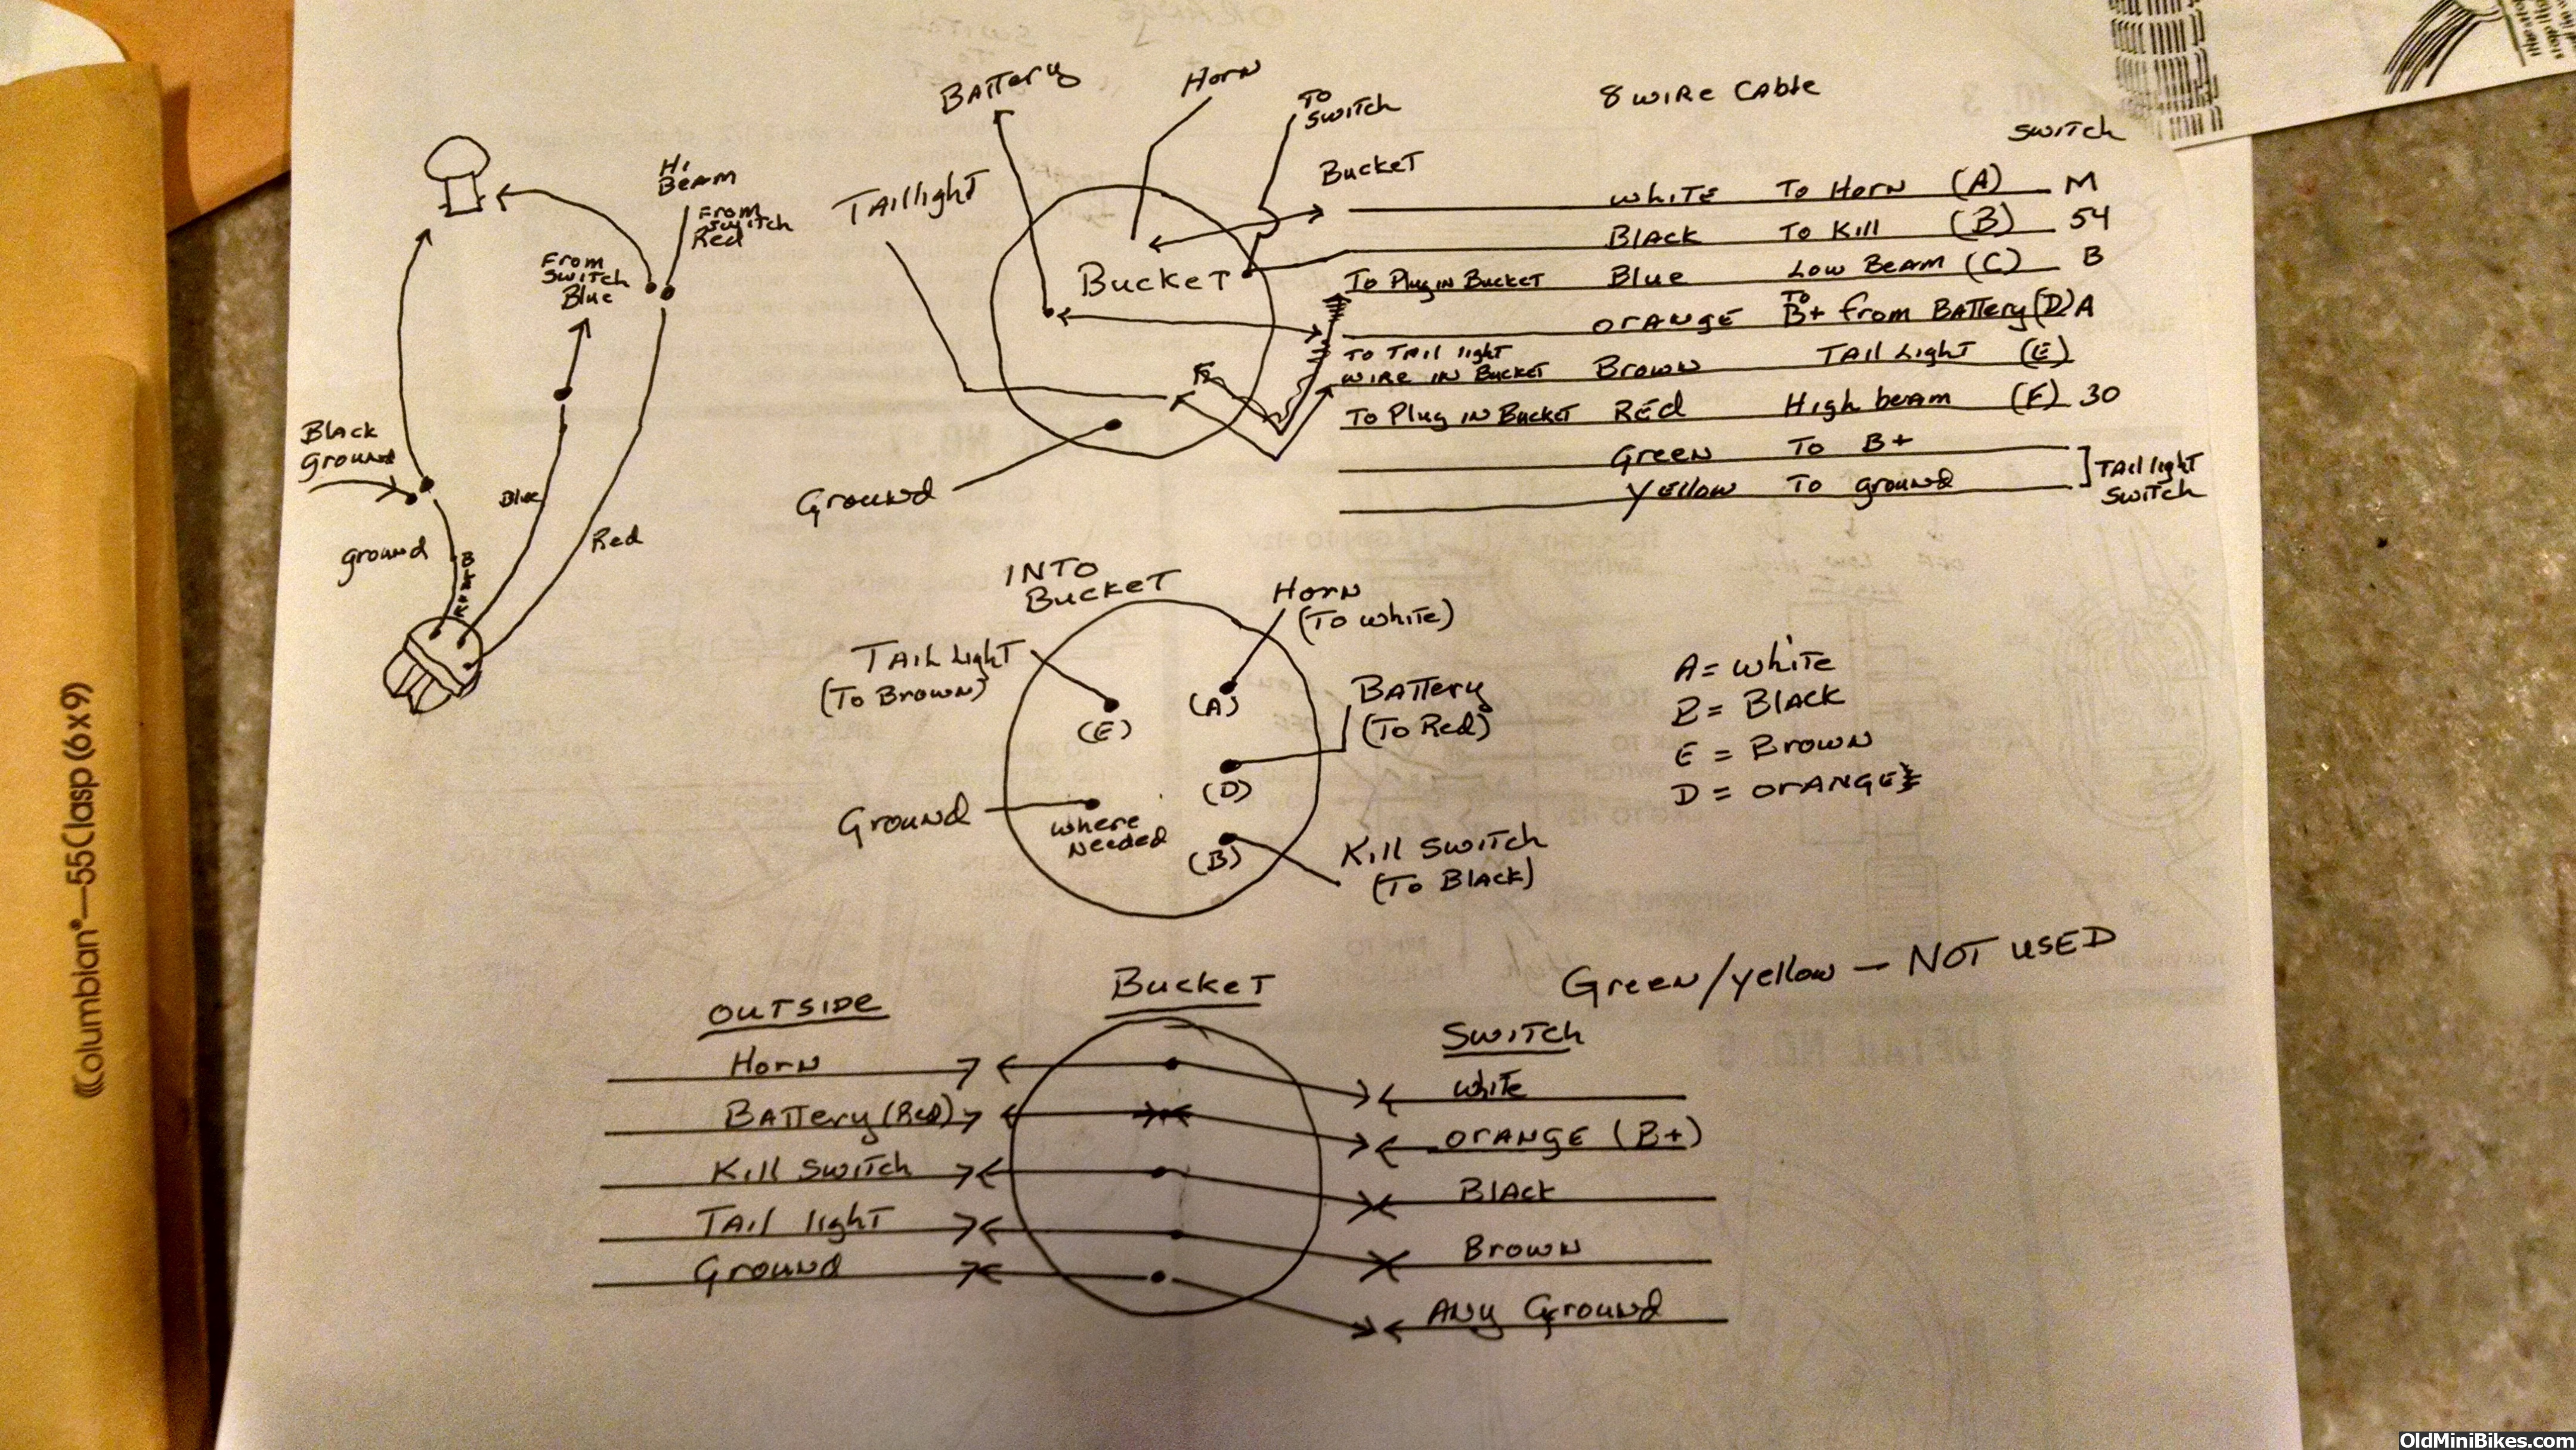 Battery
Horn
To
Switch
8 wire cable
Switch
Hi
Beam
From
switch
Red
Taillight
Bucket
White To Horn (A) M
Black To Kill (B) 54
From
Switch
Blue
Bucket
To Plug in Bucket Blue Low Beam (C) B
Orange To B+ from Battery (D) A
To Tail light
wire in Bucket Brown Tail Light (E)
To Plug in Bucket Red High beam (F) 30
Black
ground
Green To B+
Yellow To ground
Tail light
Switch
Ground
Blue
Red
ground
Black
INTO
Bucket
Horn
(To white)
Tail Light
(To Brown)
(E)
(A)
Battery
(To Red)
(D)
Ground
where
Needed
(B)
Kill Switch
(To Black)
A = white
B = Black
E = Brown
D = orange
Green/yellow — NOT USED
OUTSIDE
Bucket
Switch
Horn
white
Battery (Red)
ORANGE (B+)
Kill Switch
Black
Tail light
Brown
Ground
Any Ground
Columbian®—55 Clasp (6x9)
OldMiniBikes.com